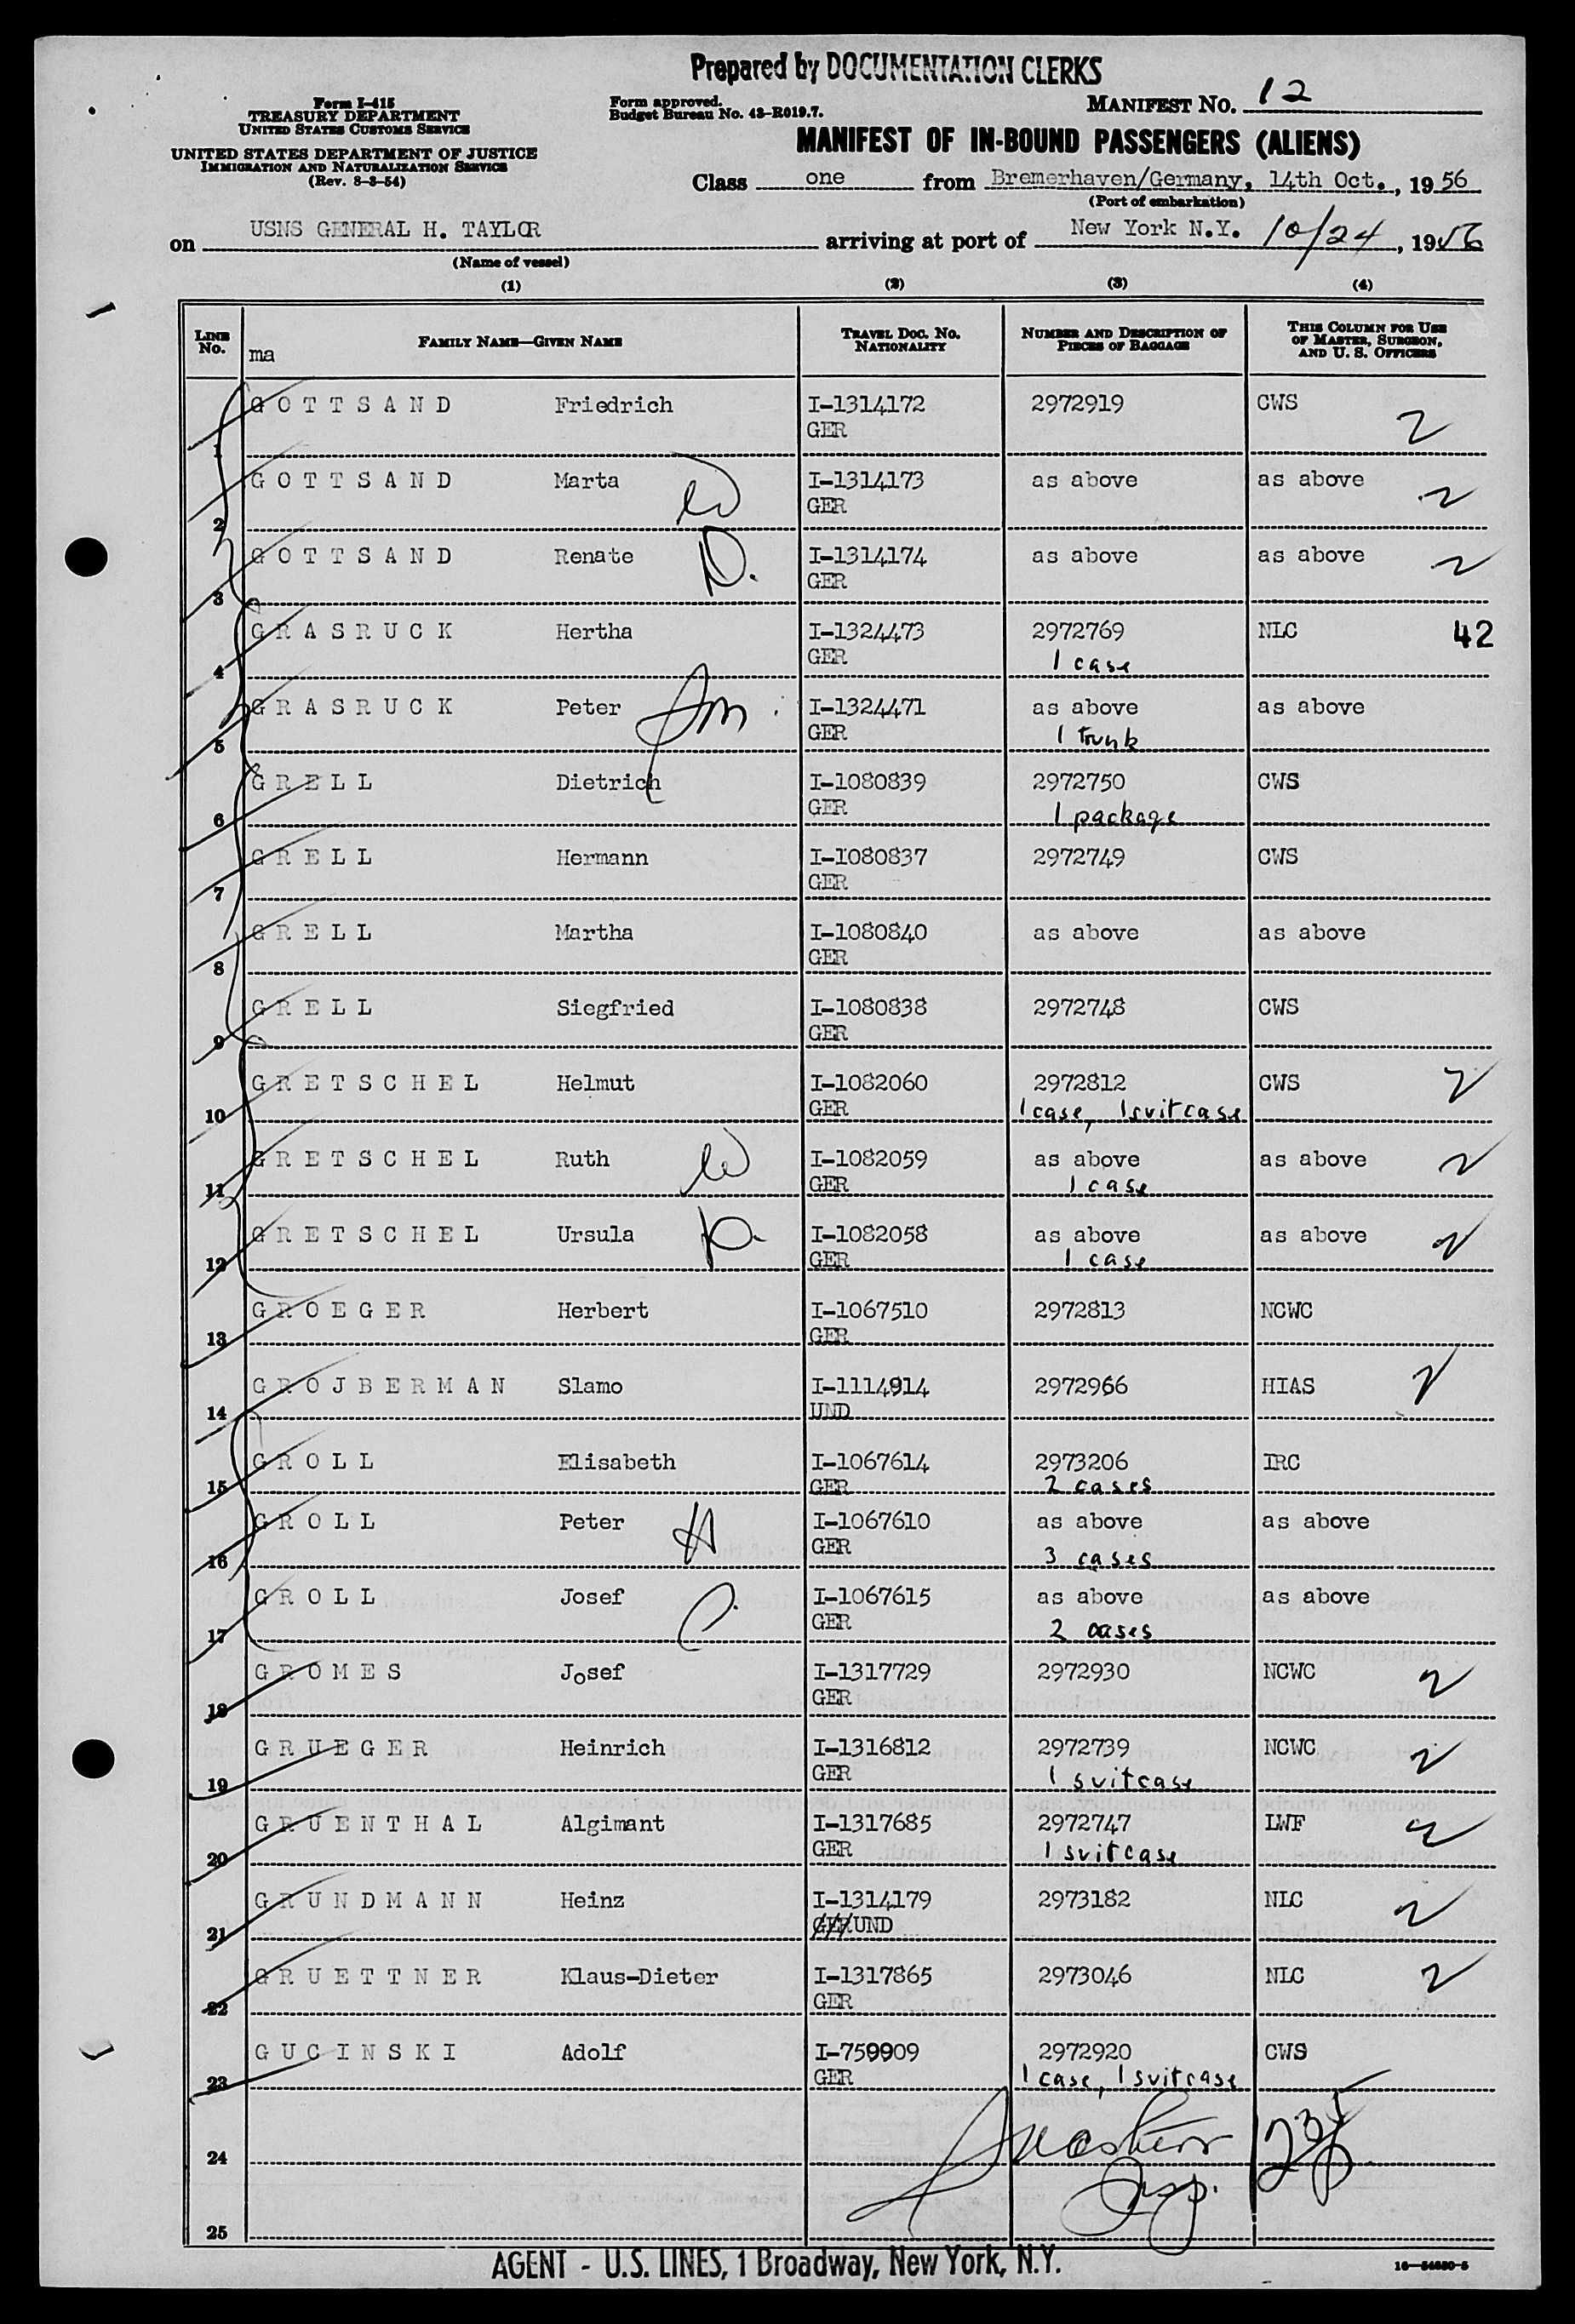 Prepared by DOCUMENTATION CLERKS
Form I-415
TREASURY DEPARTMENT
UNITED STATES CUSTOMS SERVICE
UNITED STATES DEPARTMENT OF JUSTICE
IMMIGRATION AND NATURALIZATION SERVICE
(Rev. 8-3-54)
Form approved.
Budget Bureau No. 43-R019.7.
MANIFEST NO. 12
MANIFEST OF IN-BOUND PASSENGERS (ALIENS)
Class one from Bremerhaven/Germany, 14th Oct., 1956
(Port of embarkation)
on USNS GENERAL H. TAYLOR arriving at port of New York N.Y. 10/24, 1956
(Name of vessel)
(1) (2) (3) (4)
LINE No. ma FAMILY NAME—GIVEN NAME TRAVEL DOC. NO. NATIONALITY NUMBER AND DESCRIPTION OF PIECES OF BAGGAGE THIS COLUMN FOR USE OF MASTER, SURGEON, AND U. S. OFFICERS
1 GOTTSAND Friedrich I-1314172 GER 2972919 CWS
2 GOTTSAND Marta I-1314173 GER as above as above
3 GOTTSAND Renate I-1314174 GER as above as above
4 GRASRUCK Hertha I-1324473 GER 2972769 1 case NLC 42
5 GRASRUCK Peter I-1324471 GER as above 1 trunk as above
6 GRELL Dietrich I-1080839 GER 2972750 1 package CWS
7 GRELL Hermann I-1080837 GER 2972749 CWS
8 GRELL Martha I-1080840 GER as above as above
9 GRELL Siegfried I-1080838 GER 2972748 CWS
10 GRETSCHEL Helmut I-1082060 GER 2972812 1 case, 1 suitcase CWS
11 GRETSCHEL Ruth I-1082059 GER as above 1 case as above
12 GRETSCHEL Ursula I-1082058 GER as above 1 case as above
13 GROEGER Herbert I-1067510 GER 2972813 NCWC
14 GROJBERMAN Slamo I-1114914 UND 2972966 HIAS
15 GROLL Elisabeth I-1067614 GER 2973206 2 cases IRC
16 GROLL Peter I-1067610 GER as above 3 cases as above
17 GROLL Josef I-1067615 GER as above 2 cases as above
18 GROMES Josef I-1317729 GER 2972930 NCWC
19 GRUEGER Heinrich I-1316812 GER 2972739 1 suitcase NCWC
20 GRUENTHAL Algimant I-1317685 GER 2972747 1 suitcase LWF
21 GRUNDMANN Heinz I-1314179 GER UND 2973182 NLC
22 GRUETTNER Klaus-Dieter I-1317865 GER 2973046 NLC
23 GUCINSKI Adolf I-759909 GER 2972920 1 case, 1 suitcase CWS
24
25
Insp.
AGENT - U.S. LINES, 1 Broadway, New York, N.Y.